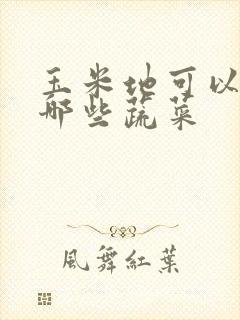 玉米地可以
那些蔬菜
風舞紅葉